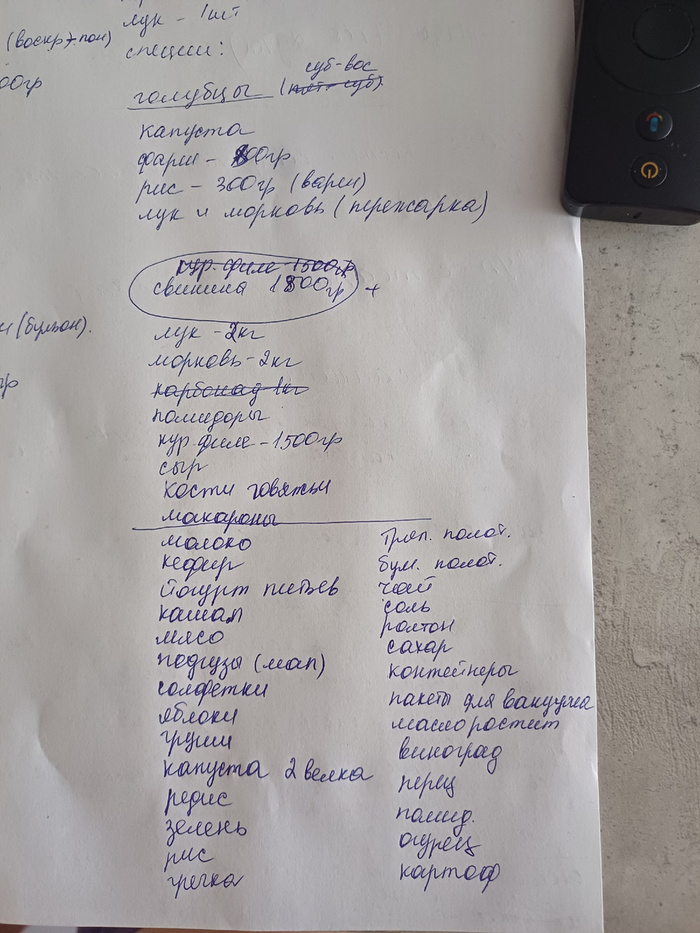 лук - 1шт
(воскр.-пон)
специи:
00гр
суб-вос
голубцы
капуста
фарш - 800гр
рис - 300гр (варш)
лук и морковь (пережарка)
кур. филе 1500гр
свинина 1800гр +
(бульон).
лук - 2кг
морковь - 2кг
гр
карбонад 1кг
помидоры
кур. филе - 1500гр
сыр
кости говяжьи
макароны
молоко
кефир
йогурт питьев
камам
мясо
подгузы (мал)
салфетки
яблоки
груши
капуста 2 велка
редис
зелень
рис
гречка
Тряп. полот.
бум. полот.
чай
соль
ролтон
сахар
контейнеры
пакеты для вакуума
масло ростит
виноград
перец
помид.
огурец
картоф